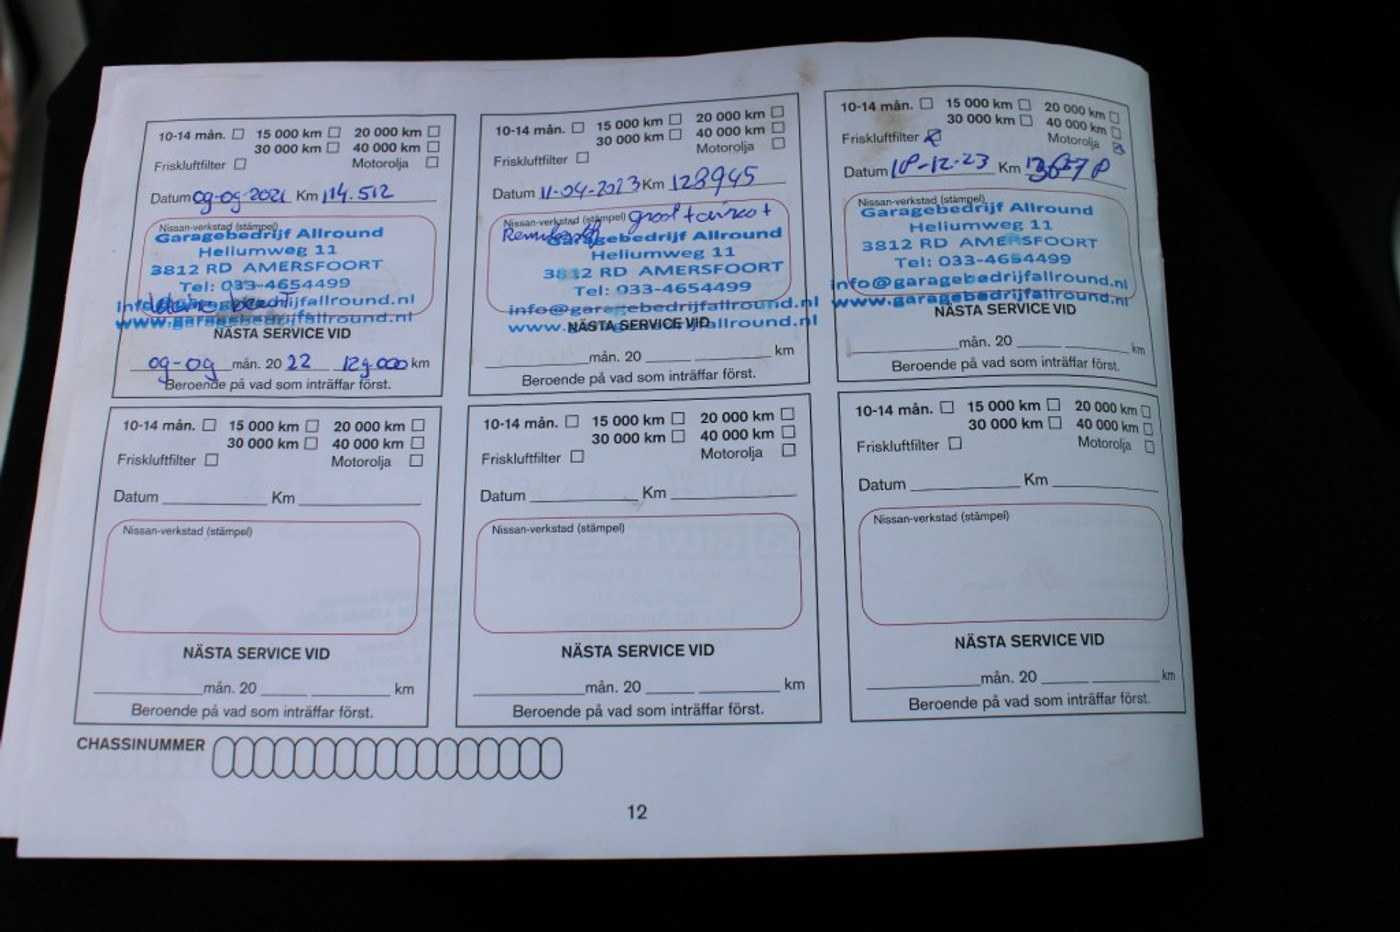 10-14 mån. 15 000 km 20 000 km
30 000 km 40 000 km
Friskluftfilter Motorolja
Datum 09-09-2021 Km 114.512
Nissan-verkstad (stämpel)
Garagebedrijf Allround
Heliumweg 11
3812 RD AMERSFOORT
Tel: 033-4654499
info@garagebedrijfallround.nl
www.garagebedrijfallround.nl
NÄSTA SERVICE VID
09-09 mån. 20 22 129.000 km
Beroende på vad som inträffar först.
10-14 mån. 15 000 km 20 000 km
30 000 km 40 000 km
Friskluftfilter Motorolja
Datum 11-04-2023 Km 128945
Nissan-verkstad (stämpel) groot + airco +
Garagebedrijf Allround
Heliumweg 11
3812 RD AMERSFOORT
Tel: 033-4654499
info@garagebedrijfallround.nl
www.garagebedrijfallround.nl
NÄSTA SERVICE VID
mån. 20 km
Beroende på vad som inträffar först.
10-14 mån. 15 000 km 20 000 km
30 000 km 40 000 km
Friskluftfilter Motorolja
Datum Km
Nissan-verkstad (stämpel)
Garagebedrijf Allround
Heliumweg 11
3812 RD AMERSFOORT
Tel: 033-4654499
info@garagebedrijfallround.nl
www.garagebedrijfallround.nl
NÄSTA SERVICE VID
mån. 20 km
Beroende på vad som inträffar först.
10-14 mån. 15 000 km 20 000 km
30 000 km 40 000 km
Friskluftfilter Motorolja
Datum Km
Nissan-verkstad (stämpel)
NÄSTA SERVICE VID
mån. 20 km
Beroende på vad som inträffar först.
10-14 mån. 15 000 km 20 000 km
30 000 km 40 000 km
Friskluftfilter Motorolja
Datum Km
Nissan-verkstad (stämpel)
NÄSTA SERVICE VID
mån. 20 km
Beroende på vad som inträffar först.
10-14 mån. 15 000 km 20 000 km
30 000 km 40 000 km
Friskluftfilter Motorolja
Datum Km
Nissan-verkstad (stämpel)
NÄSTA SERVICE VID
mån. 20 km
Beroende på vad som inträffar först.
CHASSINUMMER
12